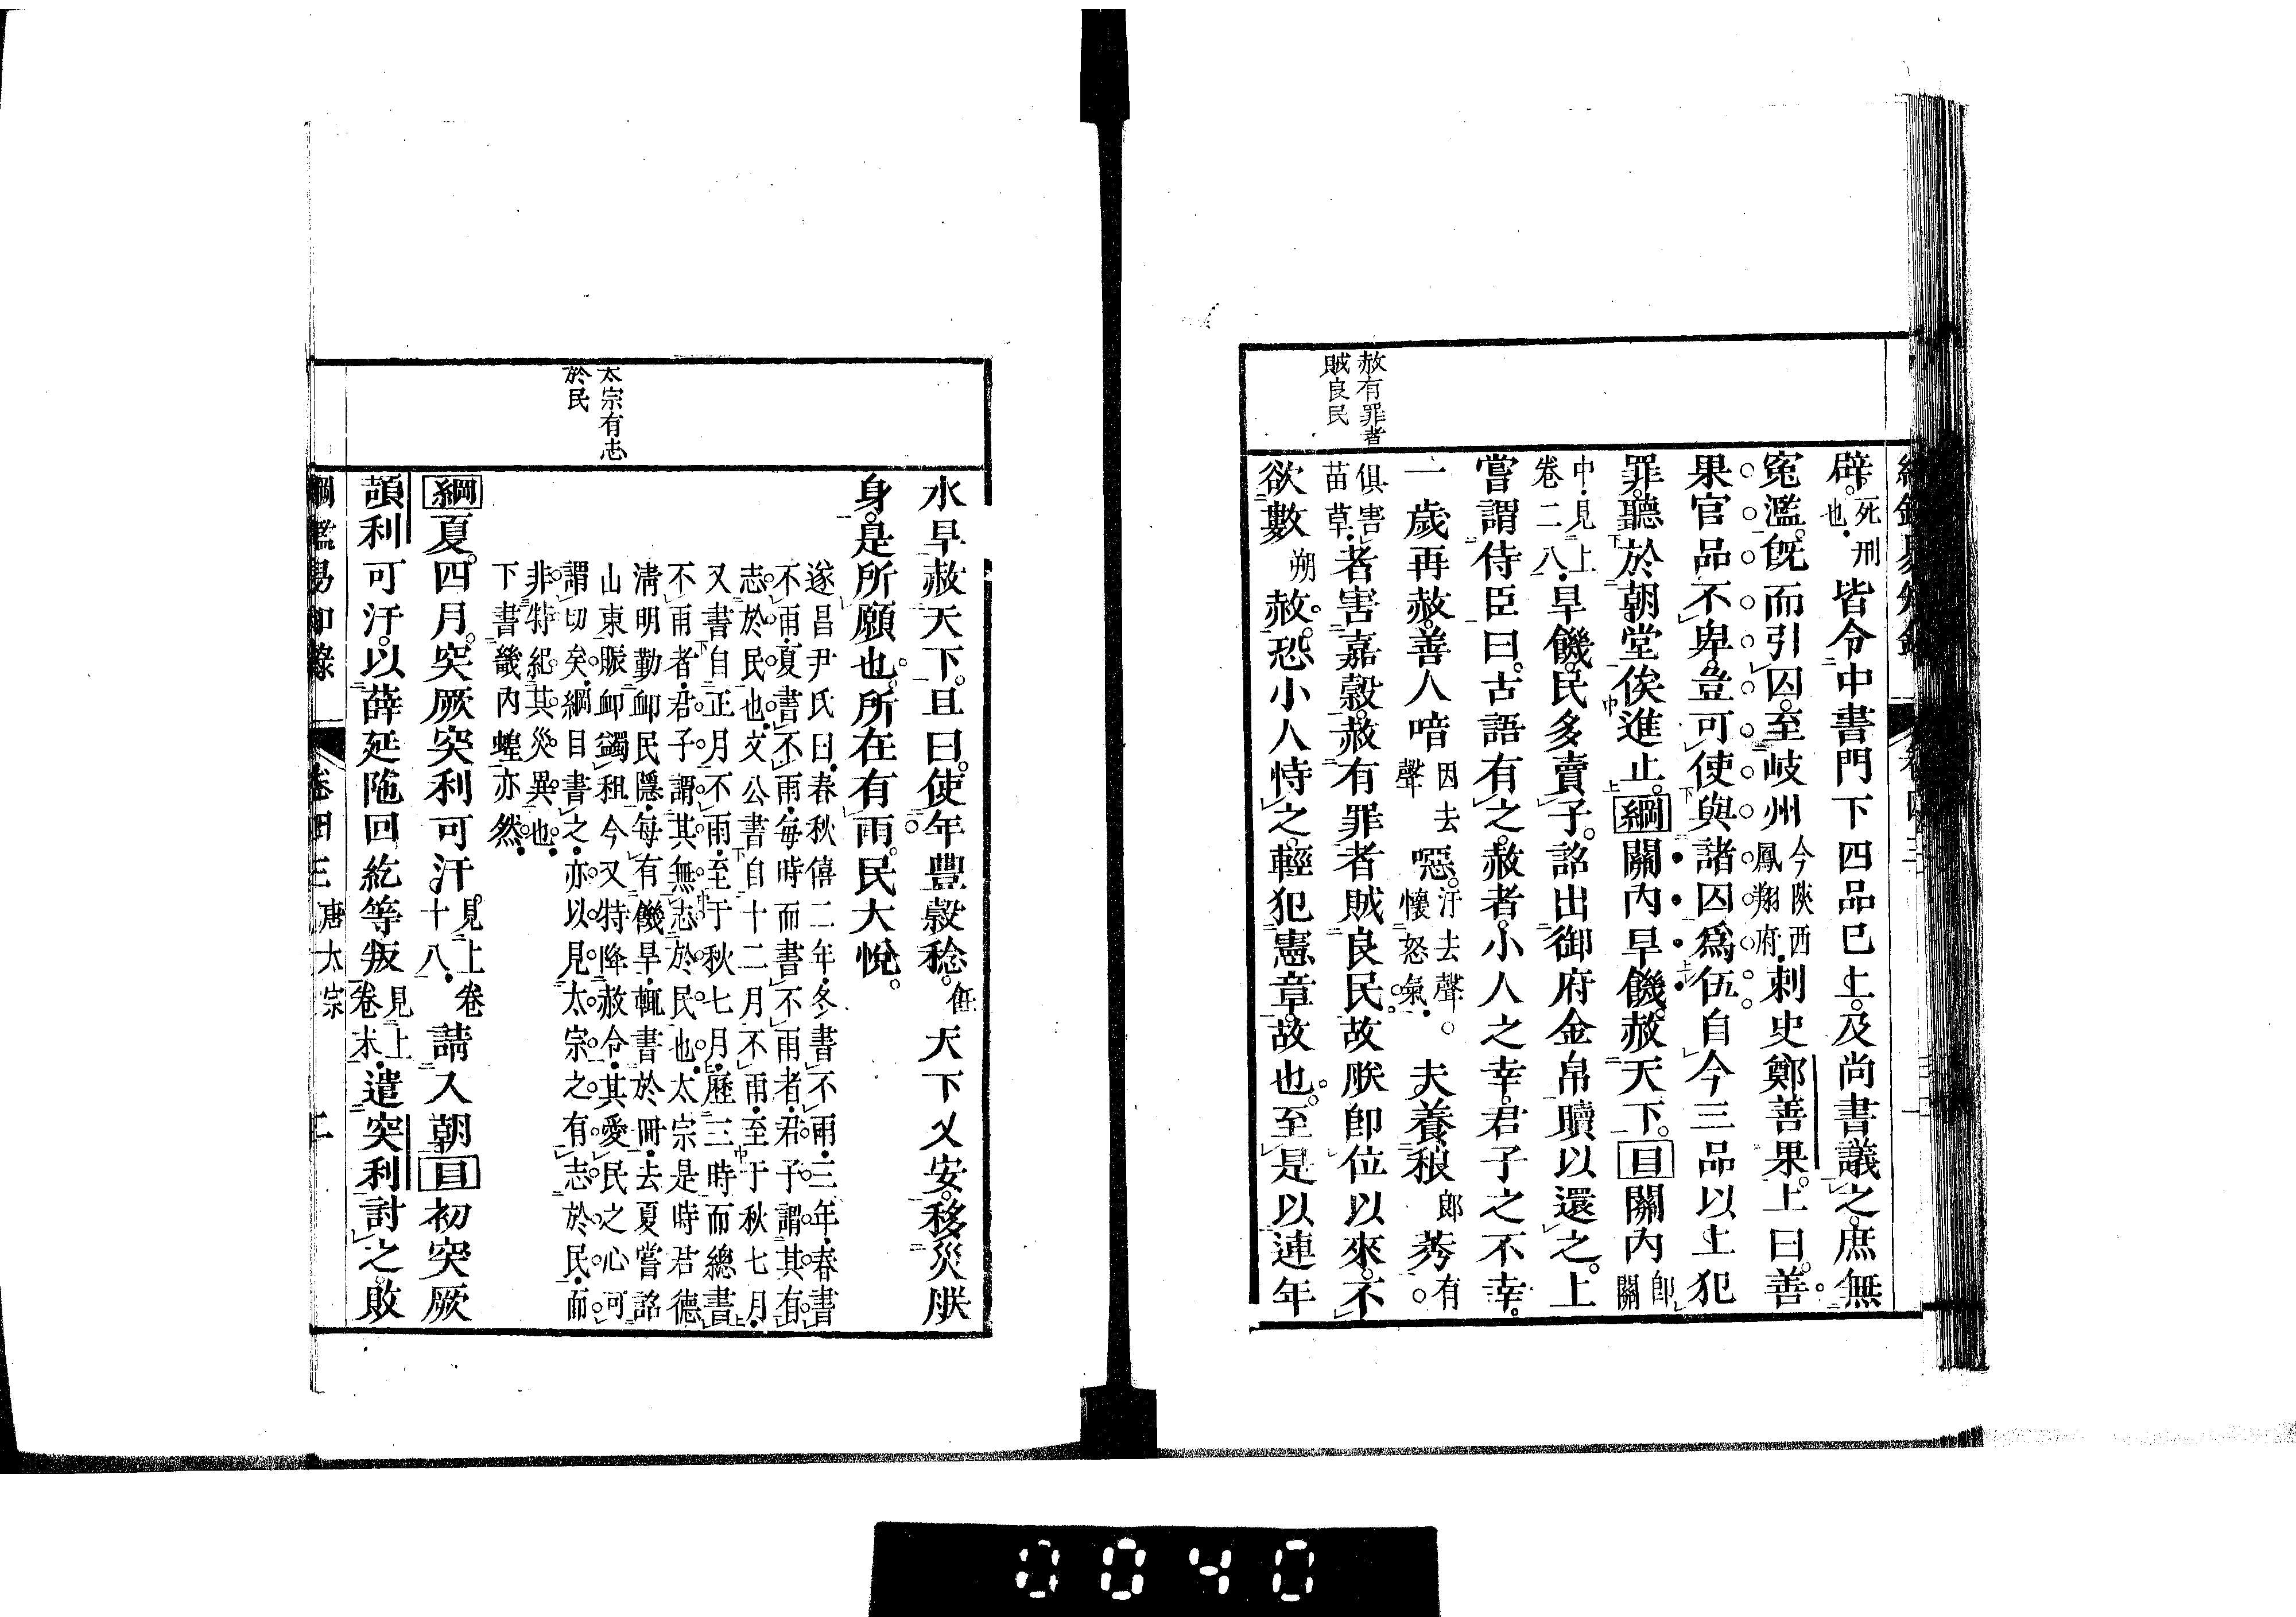 赦有罪者
賊良民
辟死刑也皆令中書門下四品已上及尚書議之庶無
寃濫旣而引囚至岐州今陝西鳳翔府刺史鄭善果上曰善
果官品不卑豈可使與諸囚爲伍自今三品以上犯
罪聽於朝堂俟進止綱關內旱饑赦天下目關內卽關
中見上卷二八旱饑民多賣子詔出御府金帛贖以還之上
嘗謂侍臣曰古語有之赦者小人之幸君子之不幸
一歲再赦善人喑因去聲噁汙去聲○懷怒氣夫養稂郎莠有○
俱害苗草者害嘉穀赦有罪者賊良民故朕卽位以來不
欲數朔赦恐小人恃之輕犯憲章故也至是以連年
太宗有志
於民
水旱赦天下且曰使年豐穀稔天下乂安移災朕
身是所願也所在有雨民大悅
遂昌尹氏曰春秋僖二年冬書不雨三年春書
不雨夏書不雨每時而書不雨者君子謂其有
志於民也文公書自十二月不雨至于秋七月
又書自正月不雨至于秋七月歷三時而總書
不雨者君子謂其無志於民也太宗是時君德
淸明勤卹民隱每有饑旱輒書於冊去夏嘗詔
山東賑卹蠲租今又特降赦令其愛民之心可
謂切矣綱目書之亦以見太宗之有志於民而
非特紀其災異也
下書畿內蝗亦然
綱夏四月突厥突利可汗見上卷十八請入朝目初突厥
頡利可汗以薛延陁回紇等叛見上卷末遣突利討之敗
綱鑑易知錄 卷四三 唐太宗 二